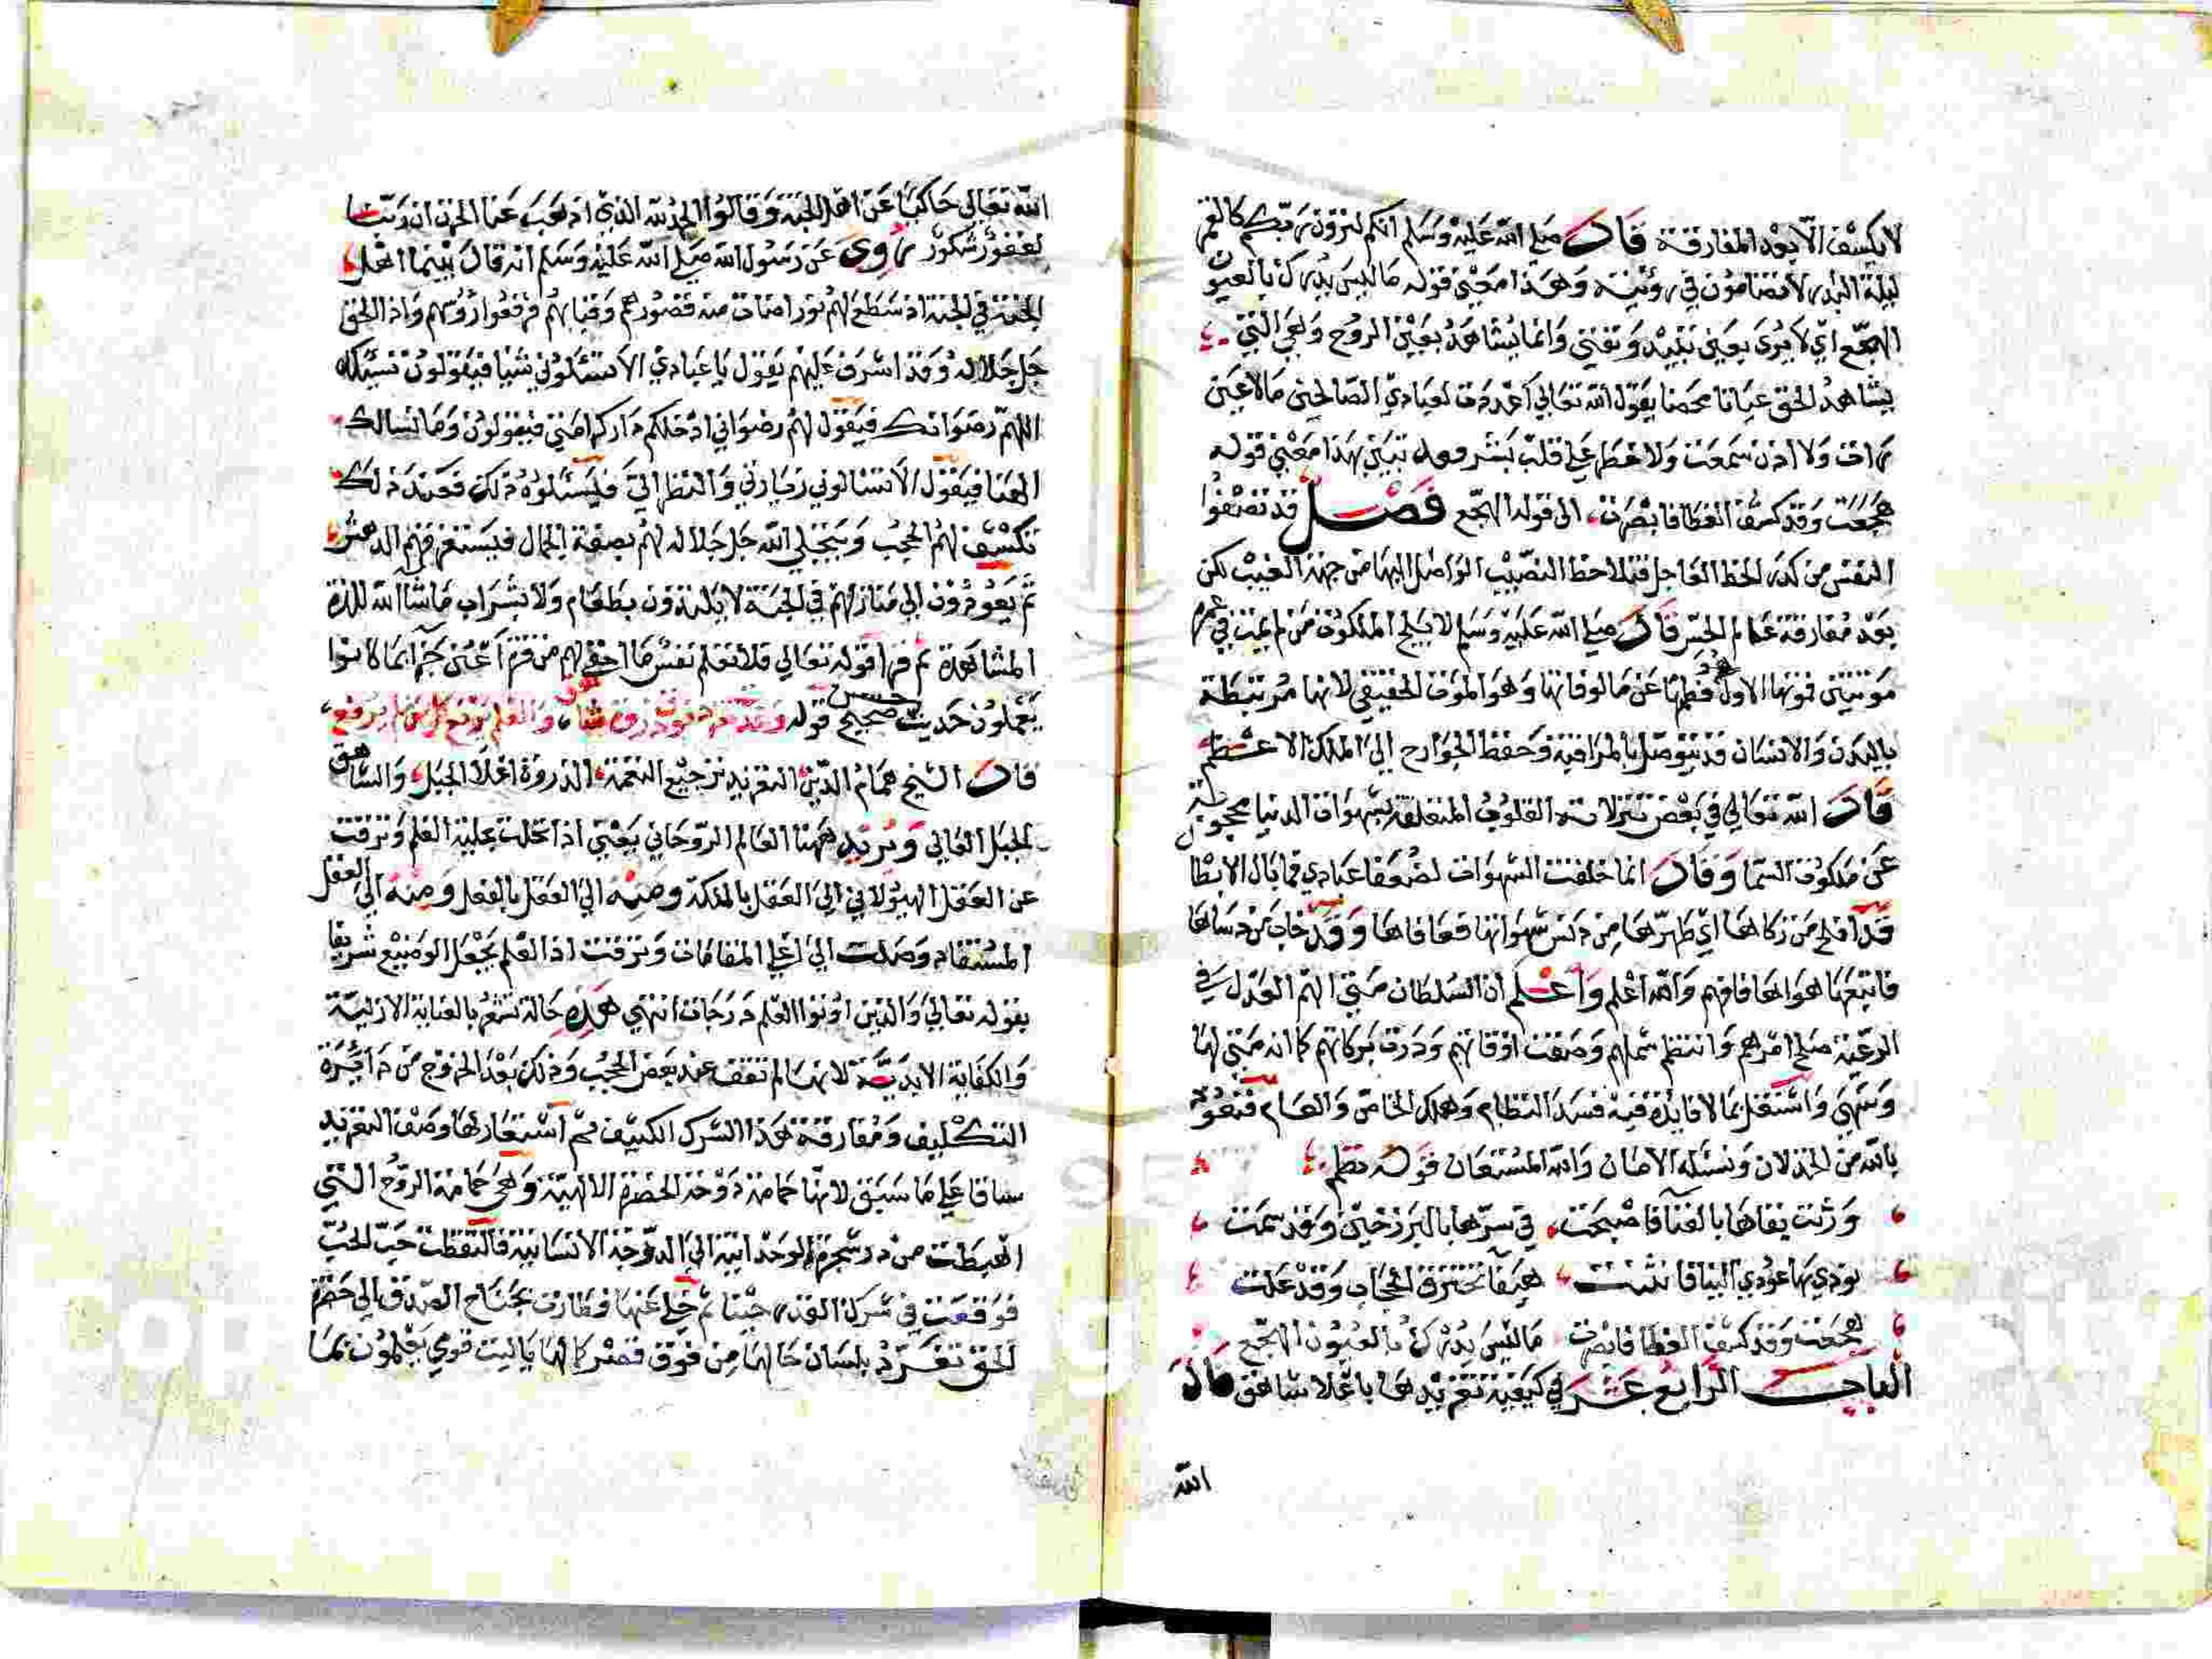 لا يكشف الا بعد المفارقة قال صلي الله عليه وسلم انكم لترون ربكم كالقمر
ليلة البدر لا تضامون في رؤيته وهذا معني قوله ما ليس يدرك بالعيون
الهجع اي لا يري بعين تبيد وتفني وانما يشاهد بعين الروح وهي التي
يشاهد الحق عيانا محضا يقول الله تعالي اعددت لعبادي الصالحين ما لا عين
رات ولا اذن سمعت ولا خطر علي قلب بشر تبين بهذا معني قوله
هجعت وقد كشف الغطا فابصرت الي قوله الهجع فصل قد تصفوا
النفس من كدر الحظ العاجل فتلاحظ النصيب الواصل اليها من جهة الغيب لكن
بعد مفارقة عالم الحس قال صلي الله عليه وسلم لا يلج الملكوت من لم يمت في عمره
موتتين فموتها الاول فطمها عن مالوفاتها وهو الموت الحقيقي لانها مرتبطة
بالبدن والانسان قد يتوصل بالمراقبة وحفظ الجوارح الي الملك الاعظم
قال الله تعالي في بعض تنزلاته القلوب المتعلقة بشهوات الدنيا محجوبة
عن ملكوت السما وقال انما خلقت الشهوات لضعفا عبادي فما بال الابطا
قد افلح من زكاها اي طهرها من دنس شهواتها فعافاها وقد خاب من دساها
فاتبعها هواها فافهم والله اعلم واعلم ان السلطان متي الهم العدل في
الرعية صلح امرهم وانتظم شملهم وصفت اوقاتهم ودرت بركاتهم كما انه متي لها
وسهي واشتغل بما لا فايدة فيه فسد النظام وهلك الخاص والعام فنعوذ
بالله من الخذلان ونسئله الامان والله المستعان قوله نظم
ورثت بقاها بالفنا فاصبحت في سرها بالبرزخين وقد سمت
نودي بها عودي الينا فانثنت هيفا تخترق الحجاب وقد علت
هجعت وقد كشف الغطا فابصرت ما ليس يدرك بالعيون الهجع
الباب الرابع عشر في كيفية تغريدها باعلا شاهق قال
الله
الله تعالي حاكيا عن اهل الجنة وقالوا الحمد لله الذي اذهب عنا الحزن ان ربنا
لغفور شكور روي عن رسول الله صلي الله عليه وسلم انه قال بينما اهل
الجنة في الجنة اذ سطع لهم نور اضات منه قصورهم وقبابهم فرفعوا رؤسهم واذا الحق
جل جلاله وقد اشرف عليهم يقول يا عبادي الا تسئلوني شيا فيقولون نسئلك
اللهم رضوانك فيقول لهم رضواني ادخلكم دار كرامتي فيقولون وما نسالك
الهنا فيقول الا تسالوني زيارتي والنظر الي فليسئلوه ذلك فعند ذلك
تكشف لهم الحجب ويتجلي الله جل جلاله لهم بصفة الجمال فيستغرقهم الدهش
ثم يعودون الي منازلهم في الجنة لا يلتذون بطعام ولا بشراب ما شا الله للذة
المشاهدة ثم قرا قوله تعالي فلا تعلم نفس ما اخفي لهم من قرة اعين جزا بما كانوا
يعملون حديث حسن صحيح قوله وغدت تغرد فوق ذروة شاهق والعلم يرفع كل من لم يرفع
قال الشيخ همام الدين التغريد ترجيع النغمة الذروة اعلا الجبل والشاهق
الجبل العالي ويريد ههنا العالم الروحاني يعني اذا تحلت بحلية العلم وترقت
عن العقل الهيولاني الي العقل بالملكة ومنه الي العقل بالفعل ومنه الي العقل
المستفاد وصلت الي اعلي المقامات وترقت اذ العلم يجعل الوضيع شريفا
بقوله تعالي والذين اوتوا العلم درجات انتهي هذه حالة تشعر بالعناية الازلية
والكفاية الابدية لانها لم تقف عند بعض الحجب وذلك بعد الخروج من دايرة
التكليف ومفارقة هذا الشرك الكثيف ثم استعار لها وصف التغريد
ساقا علي ما سبق لانها حمامة دوحة الحضرة الالهية وهي حمامة الروح التي
اهبطت من شجرة الوحدانية الي الدوحة الانسانية فالتقطت حب الحب
فوقعت في شرك القدر حينا ثم خلي عنها فطارت بجناح الصدق الي حضرة
الحق تغرد بلسان حالها من فوق قصر كمالها يا ليت قومي يعلمون بما